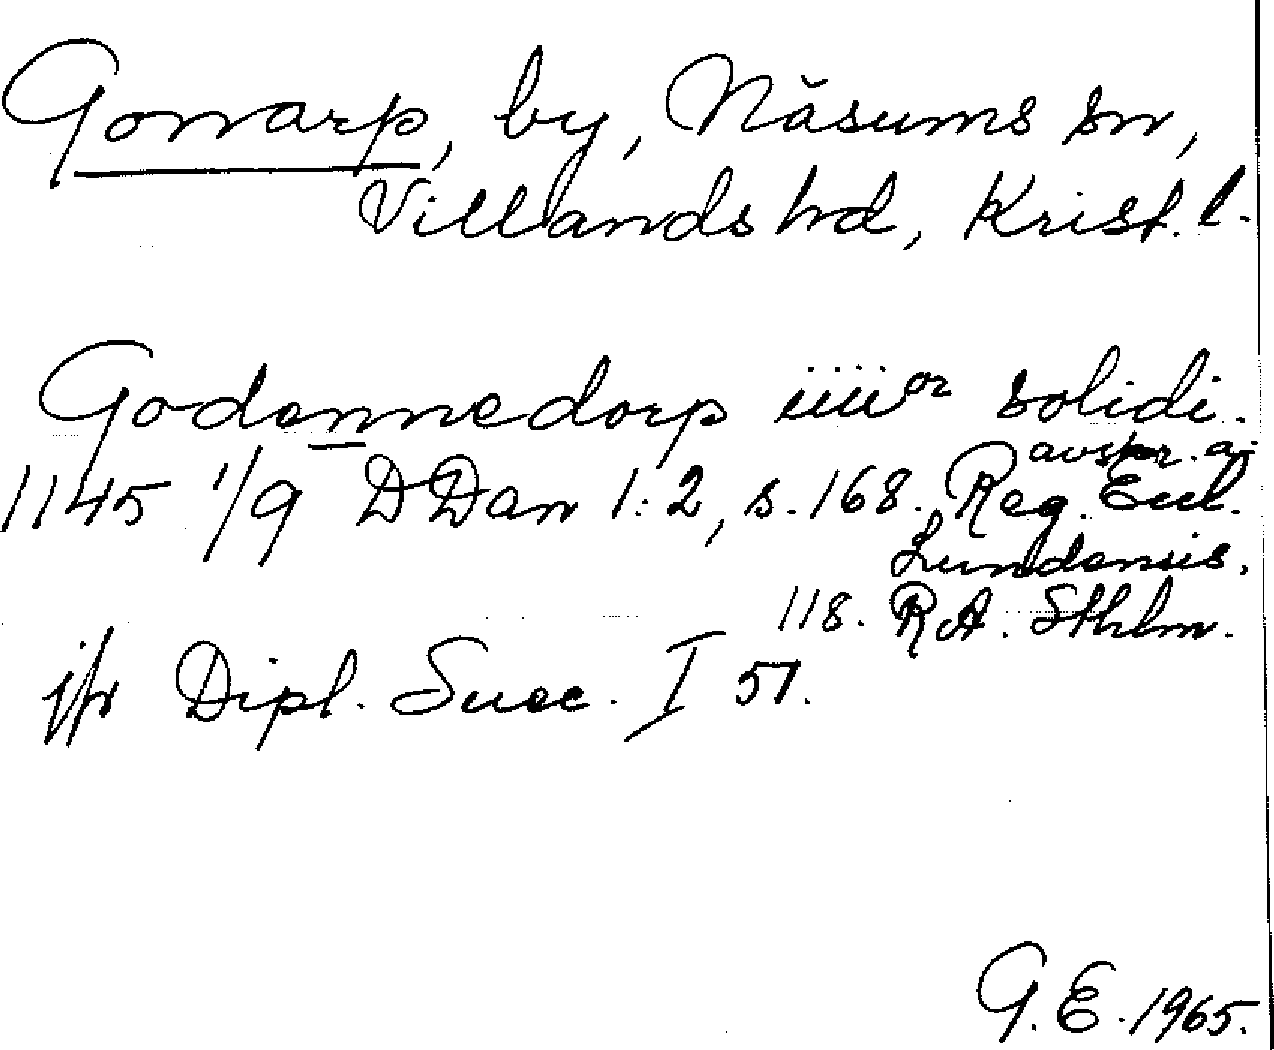 Gonnarp, by, Näsums sn,
Villands hd, Krist. l.
Godennedorp iiiior solidi.
1145 1/9 DDan 1:2, s. 168. avskr. a.
Reg. Eccl.
Lundensis.
118. RA. Sthlm.
jfr Dipl. Suec. I 57.
G.E. 1965.